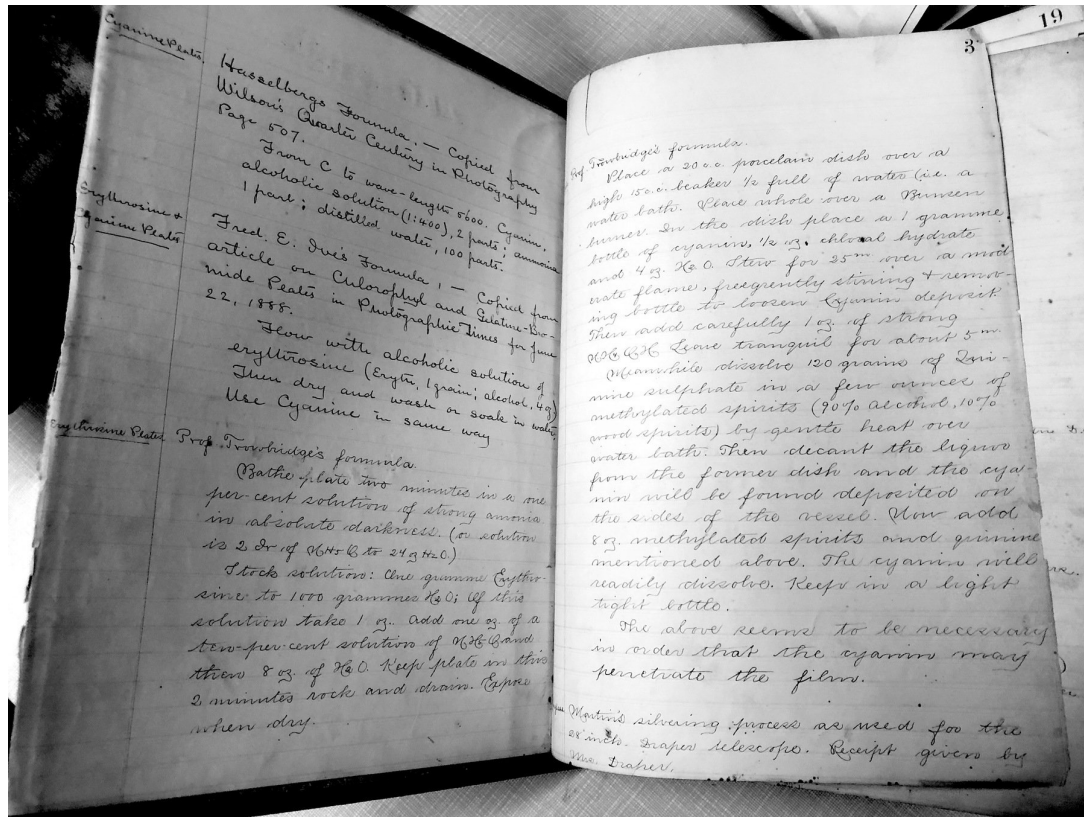 Cyanine Plates
Hasselbergs Formula. — Copied from
Wilson's Quarter Century in Photography
Page 507.
From C to wave-length 5600. Cyanin,
alcoholic solution (1:400), 2 parts; ammonia
1 part; distilled water, 100 parts.
Erythrosine &
Cyanine Plates
Fred. E. Ives Formula, — Copied from
article on Chlorophyl and Gelatine-Bro-
mide Plates in Photographic Times for June
22, 1888.
Flow with alcoholic solution of
erythrosine (Eryth, 1 grain; alcohol, 4 oz)
Then dry and wash or soak in water
Use Cyanine in same way
Erythrosine Plates
Prof. Trowbridge's formula.
Bathe plate two minutes in a one
per-cent solution of strong amonia
in absolute darkness. (or solution
is 2 Dr of to 24 oz H2O.)
Stock solution: One gramme Erythro-
sine to 1000 grammes H2O; Of this
solution take 1 oz. add one oz. of a
ten-per-cent solution of and
then 8 oz. of H2O. Keep plate in this
2 minutes rock and drain. Expose
when dry.
19
3
Prof Trowbridge's formula.
Place a 20 o.c. porcelain dish over a
high 15 o.c. beaker 1/2 full of water (i.e. a
water bath. Place whole over a Bunsen
burner. In the dish place a 1 gramme
bottle of cyanin, 1/2 oz. chloral hydrate
and 4 oz. H2O. Stew for 25m over a mod-
erate flame, freequently stirring & remov-
ing bottle to loosen Cyanin deposit.
Then add carefully 1 oz. of strong
Leave tranquil for about 5m.
Meanwhile dissolve 120 grains of Qui-
nine sulphate in a few ounces of
methylated spirits (90% alcohol, 10%
wood spirits) by gentle heat over
water bath. Then decant the liquor
from the former dish and the cya-
nin will be found deposited on
the sides of the vessel. Now add
8 oz. methylated spirits and quinine
mentioned above. The cyanin will
readily dissolve. Keep in a light
tight bottle.
The above seems to be necessary
in order that the cyanin may
penetrate the film.
Martin's silvering process as used for the
28 inch. Draper telescope. Receipt given by
Mrs. Draper.